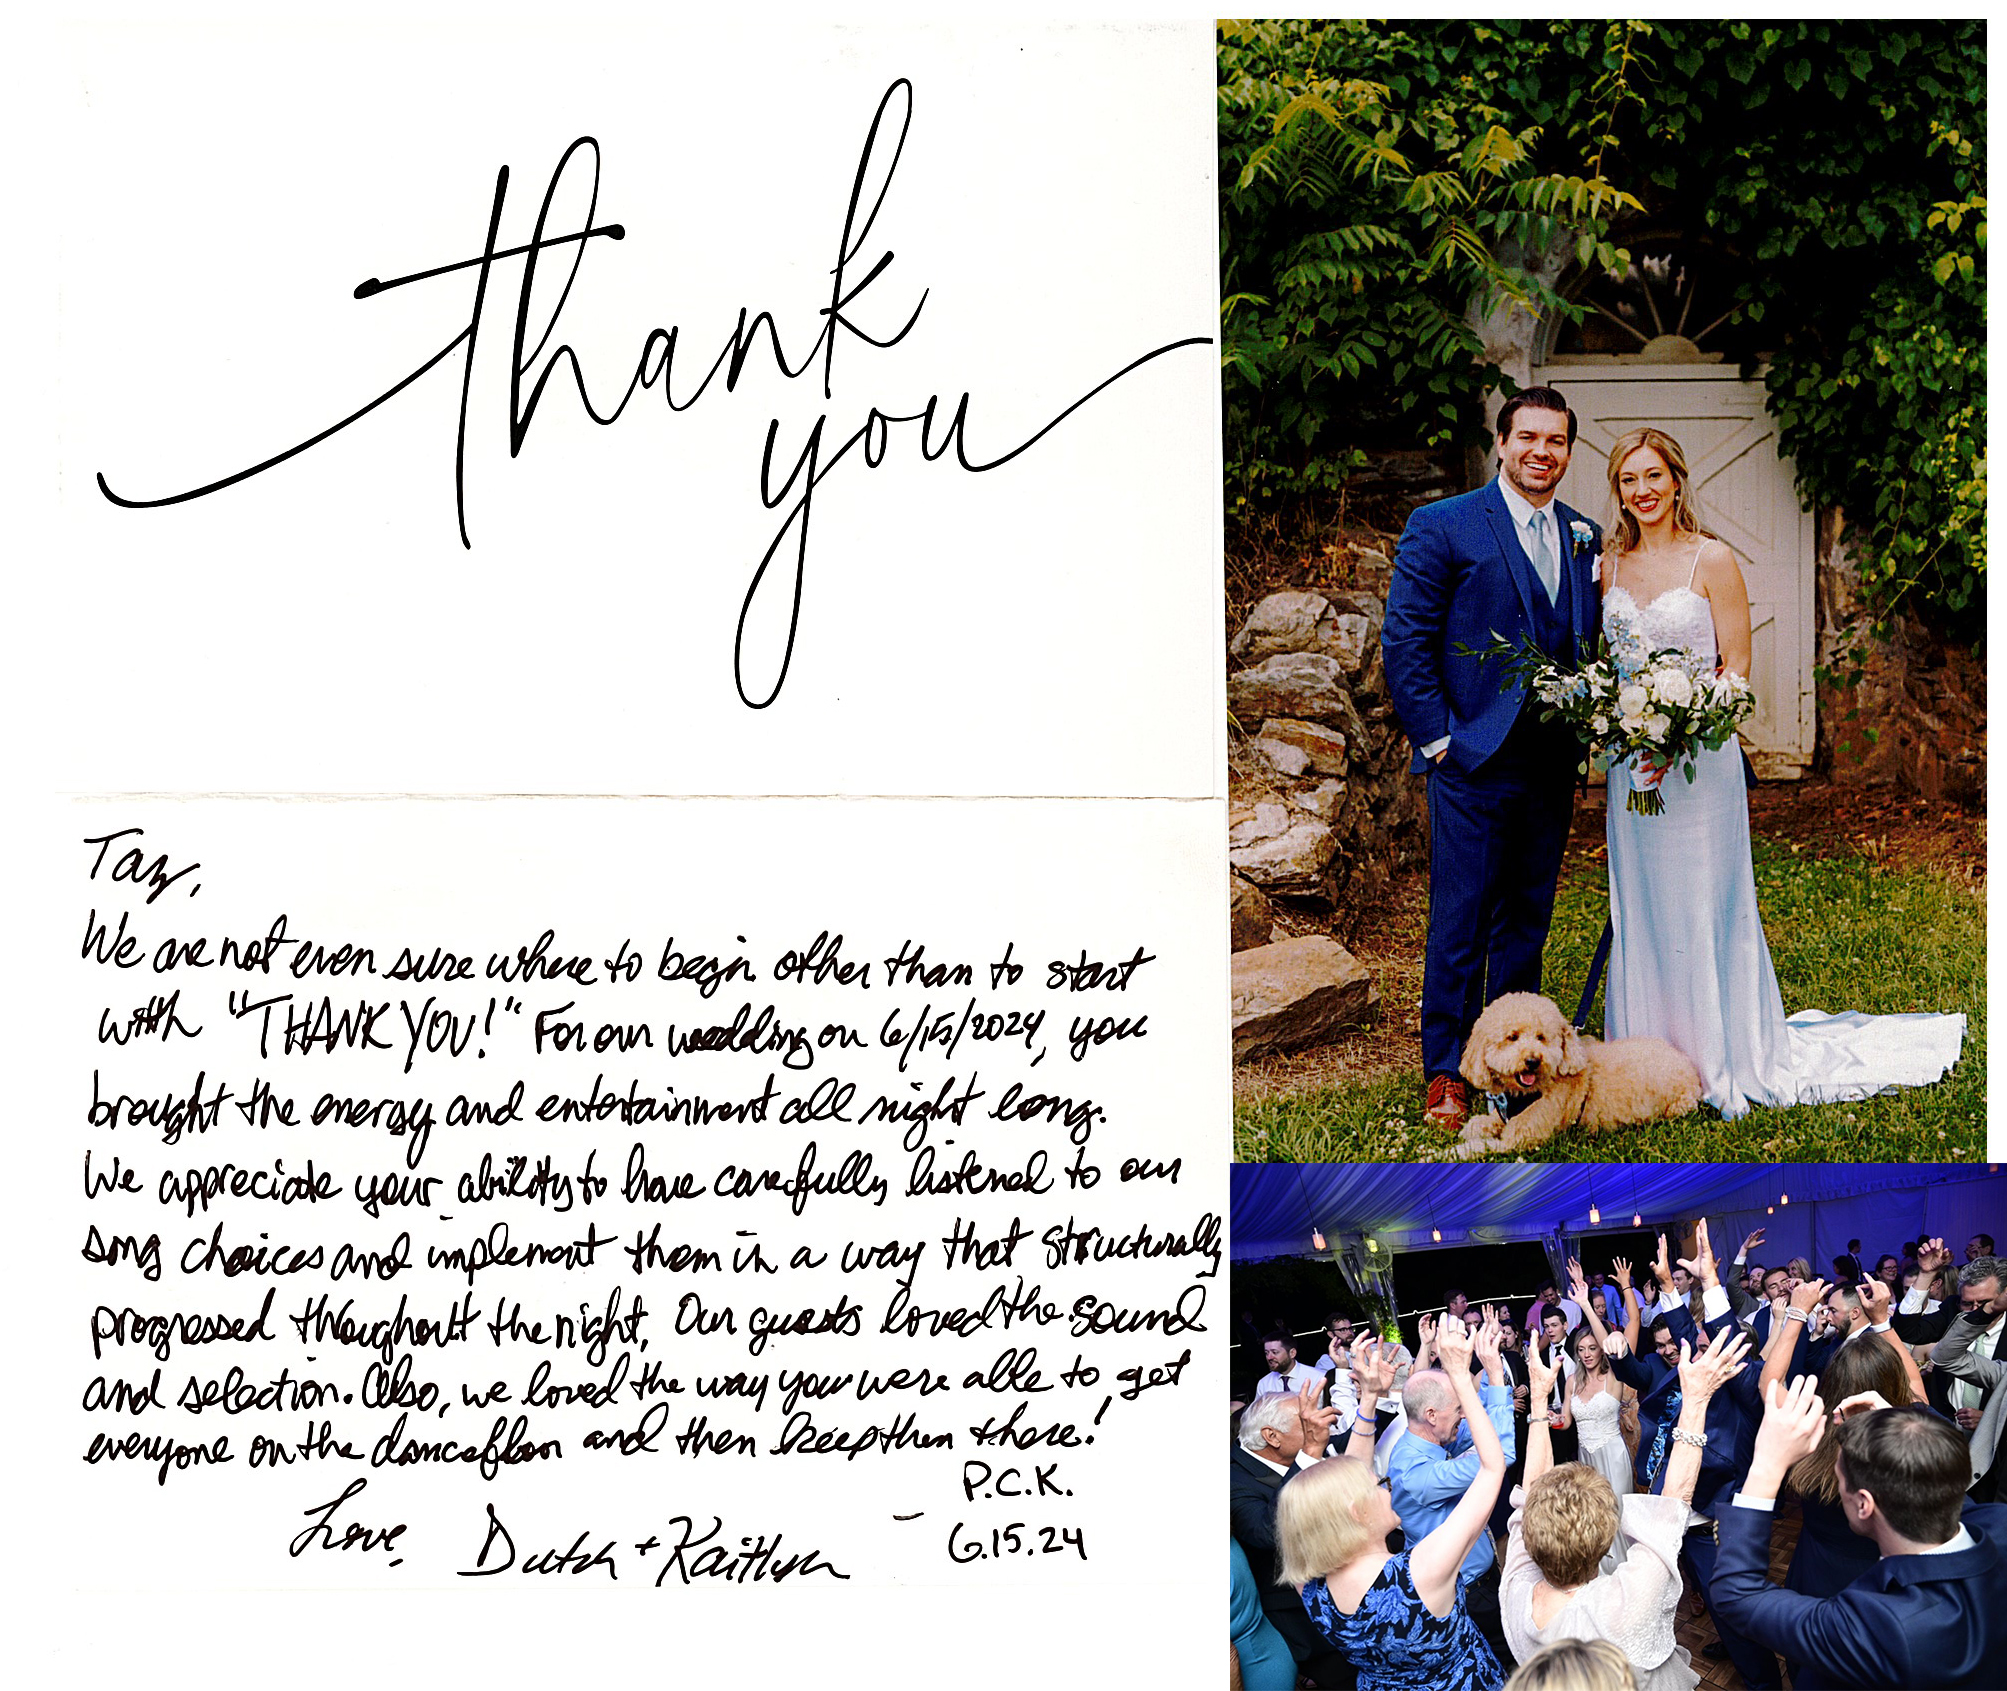 thank
you
Taz,
We are not even sure where to begin other than to start
with "THANK YOU!" For our wedding on 6/15/2024, you
brought the energy and entertainment all night long.
We appreciate your ability to have carefully listened to our
song choices and implement them in a way that structurally
progressed throughout the night. Our guests loved the sound
and selection. Also, we loved the way you were able to get
everyone on the dancefloor and then keep them there!
P.C.K.
Love, Dutch + Kaitlyn - 6.15.24